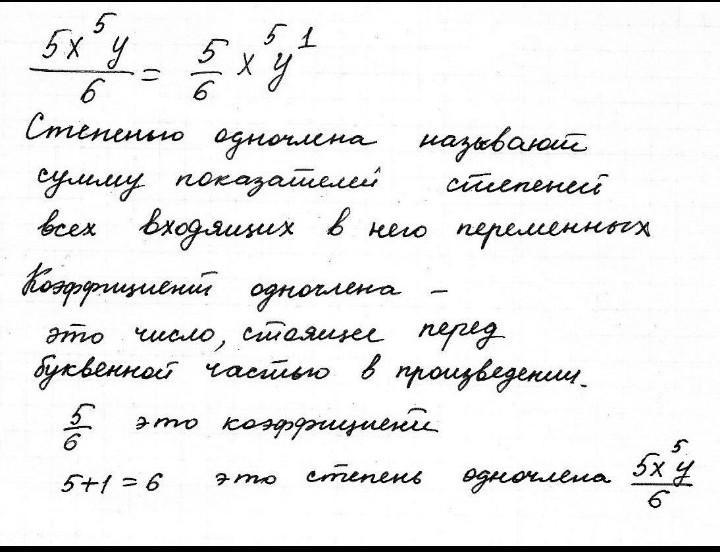 5x⁵y/6 = 5/6 x⁵y¹
Степенью одночлена называют
сумму показателей степеней
всех входящих в него переменных
Коэффициент одночлена –
это число, стоящее перед
буквенной частью в произведении.
5/6 это коэффициент
5+1=6 это степень одночлена 5x⁵y/6